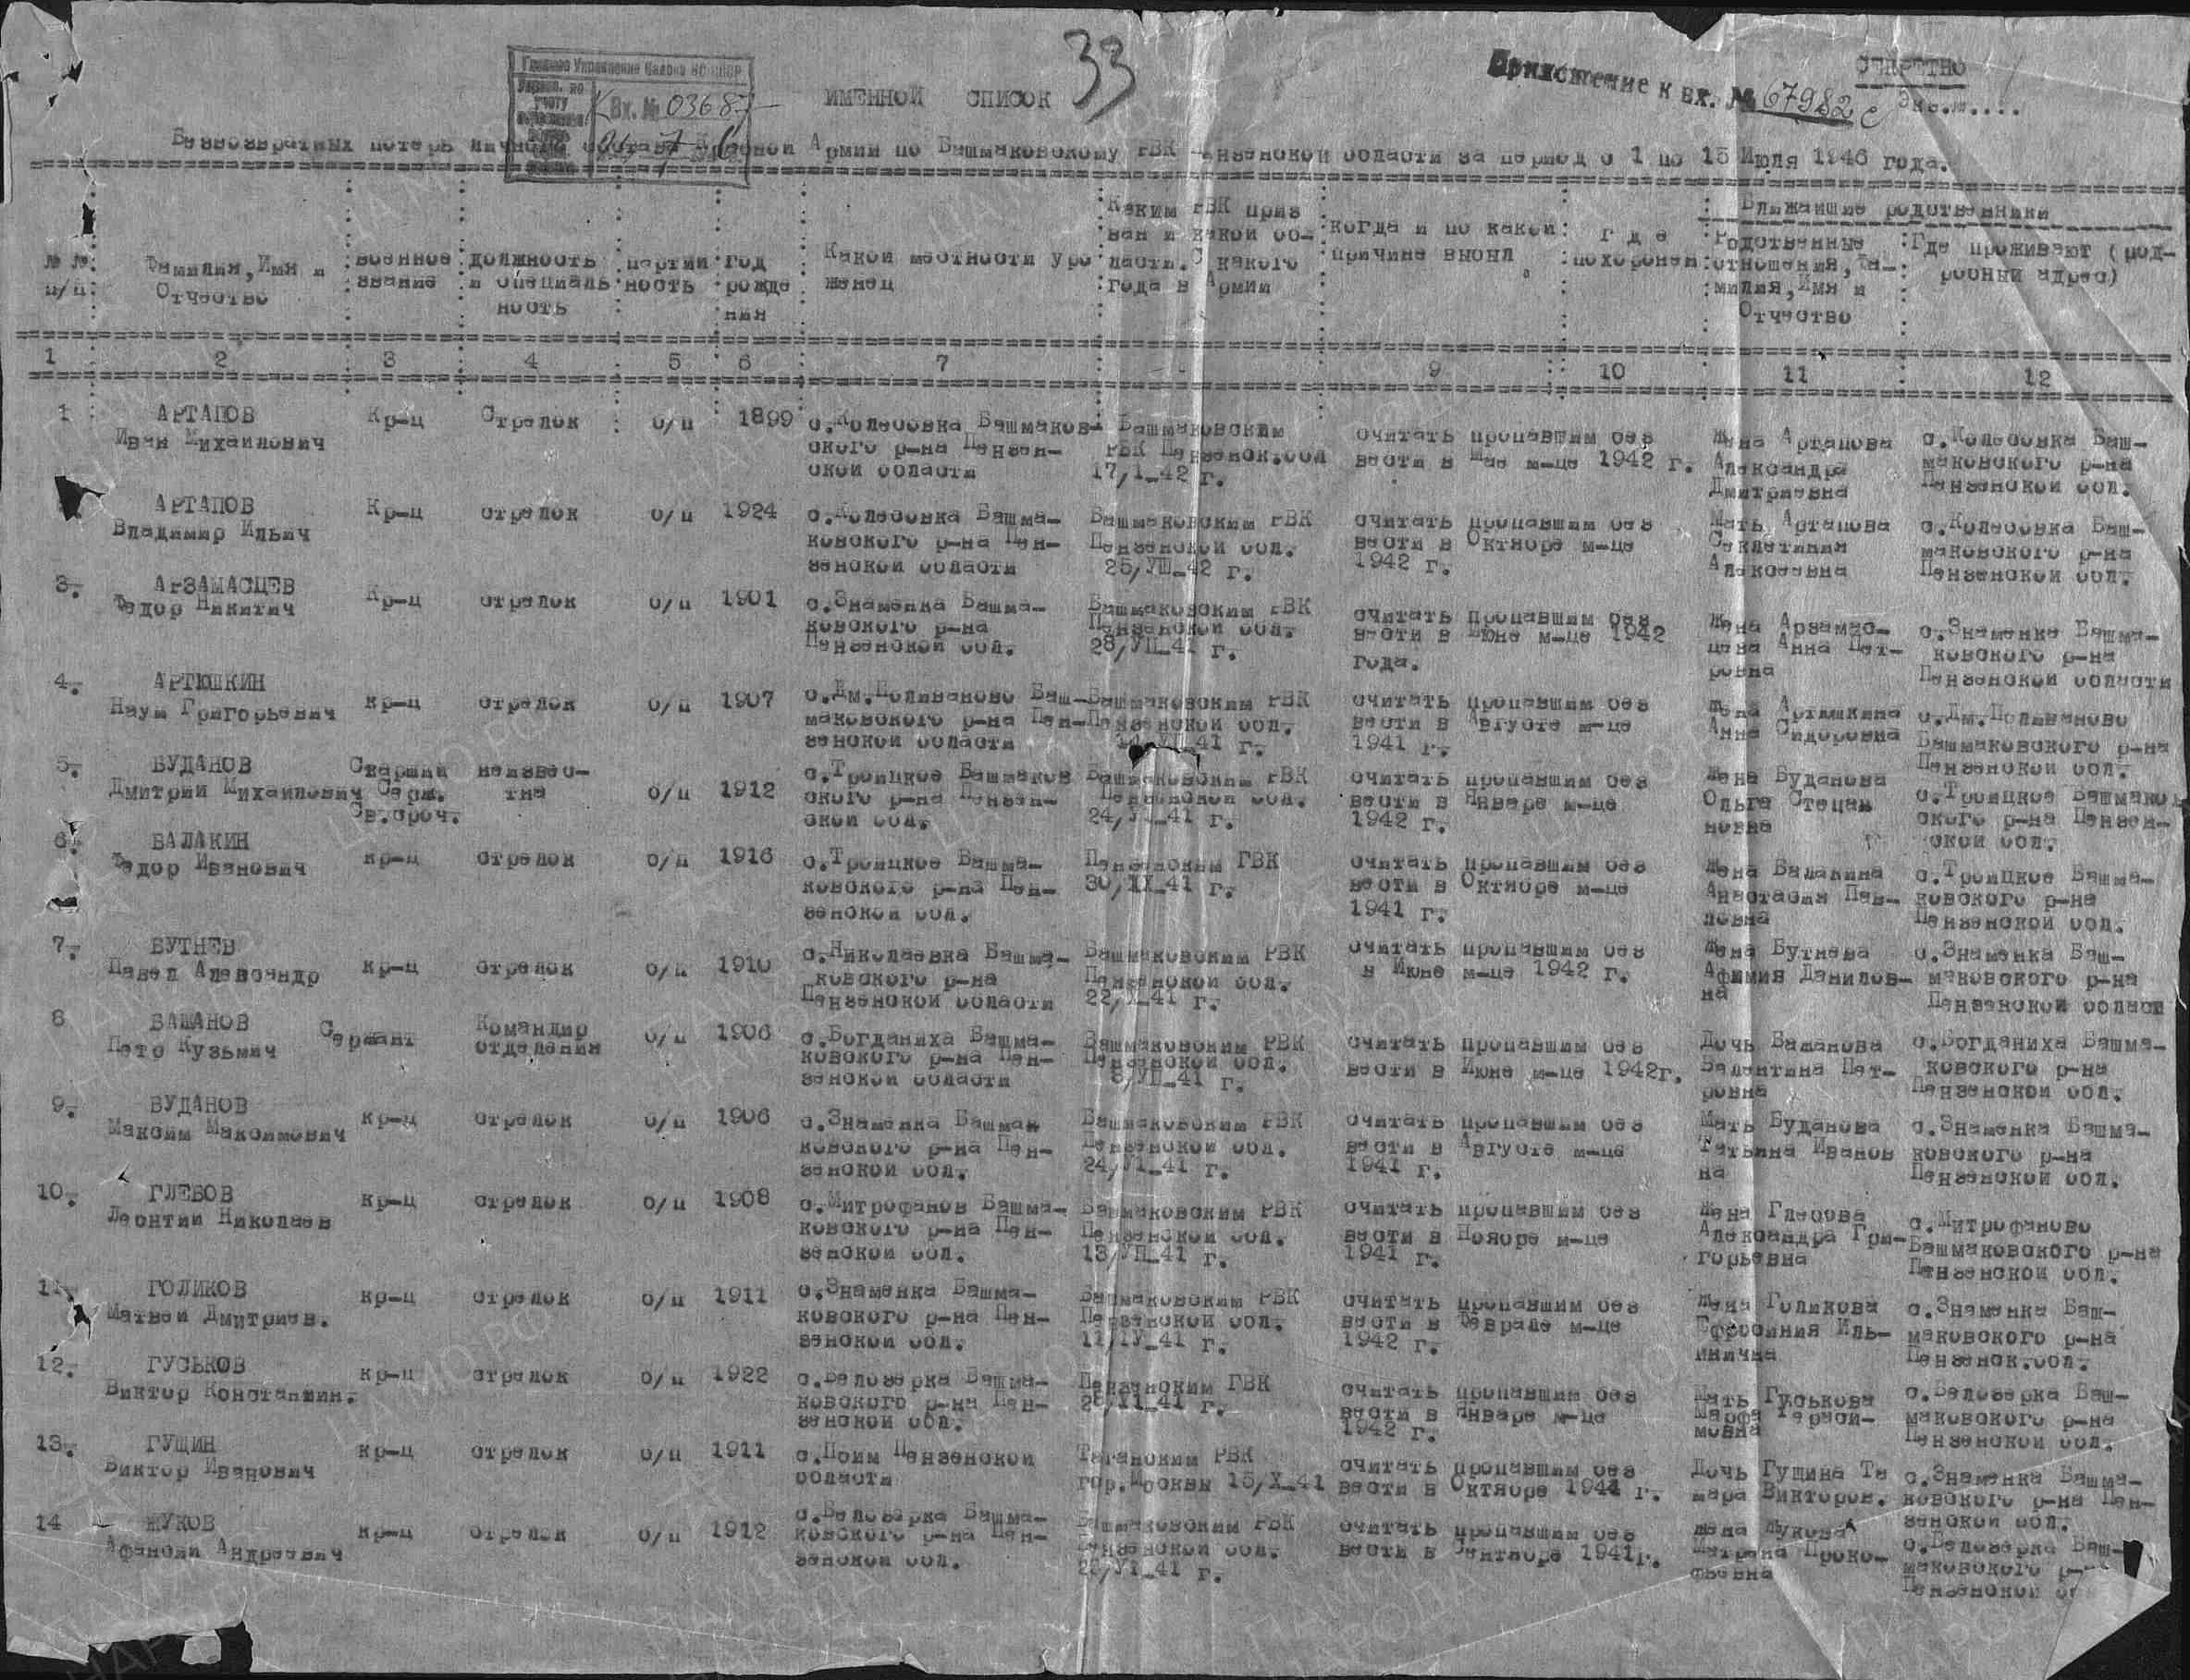 33
СЕКРЕТНО
Приложение к вх. № 67982 с Экз.№....
Главное Управление Кадров ВС СССР
Вх. № 03687
ИМЕННОЙ СПИСОК
Безвозвратных потерь личного состава Красной Армии по Башмаковскому РВК Пензенской области за период с 1 по 15 Июля 1946 года.
№ № п/п
Фамилия, Имя и Отчество
военное звание
должность и специальность
партийность
год рождения
Какой местности уроженец
Каким РВК призван и какой области. С какого года в Армии
когда и по какой причине выбыл
где похоронен
Ближайшие родственники
Родственные отношения, Фамилия, Имя и Отчество
Где проживают (подробный адрес)
1 2 3 4 5 6 7 9 10 11 12
1 АРТАПОВ Кр-ц Стрелок б/п 1899 с.Колесовка Башмаков- Башмаковским считать пропавшим без Жена Артапова с.Колесовка Баш-
Иван Михайлович ского р-на Пензен- РВК Пензенск.обл вести в Мае м-це 1942 г. Александра маковского р-на
ской области 17/1-42 г. Дмитриевна Пензенской обл.
АРТАПОВ Кр-ц стрелок б/п 1924 с.Колесовка Башма- Башмаковским РВК считать пропавшим без Мать Артапова с.Колесовка Баш-
Владимир Ильич ковского р-на Пен- Пензенской обл. вести в Октябре м-це Секлетиния маковского р-на
зенской области 25/УШ-42 г. 1942 г. Алексеевна Пензенской обл.
3. АРЗАМАСЦЕВ Кр-ц стрелок б/п 1901 с.Знаменка Башма- Башмаковским РВК считать пропавшим без Жена Арзамас- с.Знаменка Башма-
Федор Никитич ковского р-на Пензенской обл. вести в Июне м-це 1942 цева Анна Пет- ковского р-на
Пензенской обл. 28/УП-41 г. года. ровна Пензенской области
4. АРТЮШКИН кр-ц стрелок б/п 1907 с.Дм.Поливаново Баш- Башмаковским РВК считать пропавшим без Жена Артюшкина с.Дм.Поливаново
Наум Григорьевич маковского р-на Пен- Пензенской обл. вести в Августе м-це Анна Сидоровна Башмаковского р-на
зенской области 41 г. 1941 г. Пензенской обл.
5. БУДАНОВ Старший неизвес- б/п 1912 с.Троицкое Башмаков Башмаковским РВК считать пропавшим без Жена Буданова с.Троицкое Башмаков
Дмитрий Михайлович Серж. тна ского р-на Пензен- Пензенской обл. вести в Январе м-це Ольга Степан ского р-на Пензен-
Св.сроч. ской обл. 24/У1-41 г. 1942 г. новна ской обл.
6. БАЛАКИН кр-ц стрелок б/п 1916 с.Троицкое Башма- Пензенским ГВК считать пропавшим без Жена Балакина с.Троицкое Башма-
Федор Иванович ковского р-на Пен- 30/IX-41 г. вести в Октябре м-це Анастасия Пав- ковского р-на
зенской обл. 1941 г. ловна Пензенской обл.
7. БУТНЕВ кр-ц стрелок б/п 1910 с.Николаевка Башма- Башмаковским РВК считать пропавшим без Жена Бутнева с.Знаменка Баш-
Павел Александр ковского р-на Пензенской обл. в Июне м-це 1942 г. Афимия Данилов- маковского р-на
Пензенской области 22/X-41 г. на Пензенской област
8 БАШАНОВ Сержант Командир б/п 1906 с.Богданиха Башма- Башмаковским РВК считать пропавшим без Дочь Башанова с.Богданиха Башма-
Петр Кузьмич отделения ковского р-на Пен- Пензенской обл. вести в Июне м-це 1942г. Валентина Пет- ковского р-на
зенской области 8/УП-41 г. ровна Пензенской обл.
9. БУДАНОВ кр-ц стрелок б/п 1906 с.Знаменка Башмак Башмаковским РВК считать пропавшим без Мать Буданова с.Знаменка Башма-
Максим Максимович ковского р-на Пен- Пензенской обл. вести в Августе м-це Татьяна Иванов ковского р-на
зенской обл. 24/У1-41 г. 1941 г. на Пензенской обл.
10. ГЛЕБОВ кр-ц стрелок б/п 1908 с.Митрофанов Башма- Башмаковским РВК считать пропавшим без Жена Глебова с.Митрофаново
Леонтий Николаев ковского р-на Пен- Пензенской обл. вести в Ноябре м-це Александра Гри- Башмаковского р-на
зенской обл. 13/УП-41 г. 1941 г. горьевна Пензенской обл.
11. ГОЛИКОВ кр-ц стрелок б/п 1911 с.Знаменка Башма- Башмаковским РВК считать пропавшим без Жена Голикова с.Знаменка Баш-
Матвей Дмитриев. ковского р-на Пен- Пензенской обл. вести в Феврале м-це Ефросиния Иль- маковского р-на
зенской обл. 11/1У-41 г. 1942 г. инична Пензенск.обл.
12. ГУСЬКОВ кр-ц стрелок б/п 1922 с.Белозерка Башма- Пензенским ГВК считать пропавшим без Мать Гуськова с.Белозерка Баш-
Виктор Константин. ковского р-на Пен- 41 г. вести в Январе м-це Марфа Гераси- маковского р-на
зенской обл. 1942 г. мовна Пензенской обл.
13. ГУЩИН кр-ц стрелок б/п 1911 с.Поим Пензенской Таганским РВК считать пропавшим без Дочь Гущина Та с.Знаменка Башма-
Виктор Иванович области гор.Москвы 15/X-41 вести в Октябре 1941 г. мара Викторов. ковского р-на Пен-
зенской обл.
14 ЖУКОВ кр-ц стрелок б/п 1912 с.Белозерка Башма- Башмаковским РВК считать пропавшим без Жена Жукова с.Белозерка Баш-
Афанасий Андреевич ковского р-на Пен- Пензенской обл. вести в Сентябре 1941г. Матрена Проко- маковского р-
зенской обл. У1-41 г. фьевна Пензенской